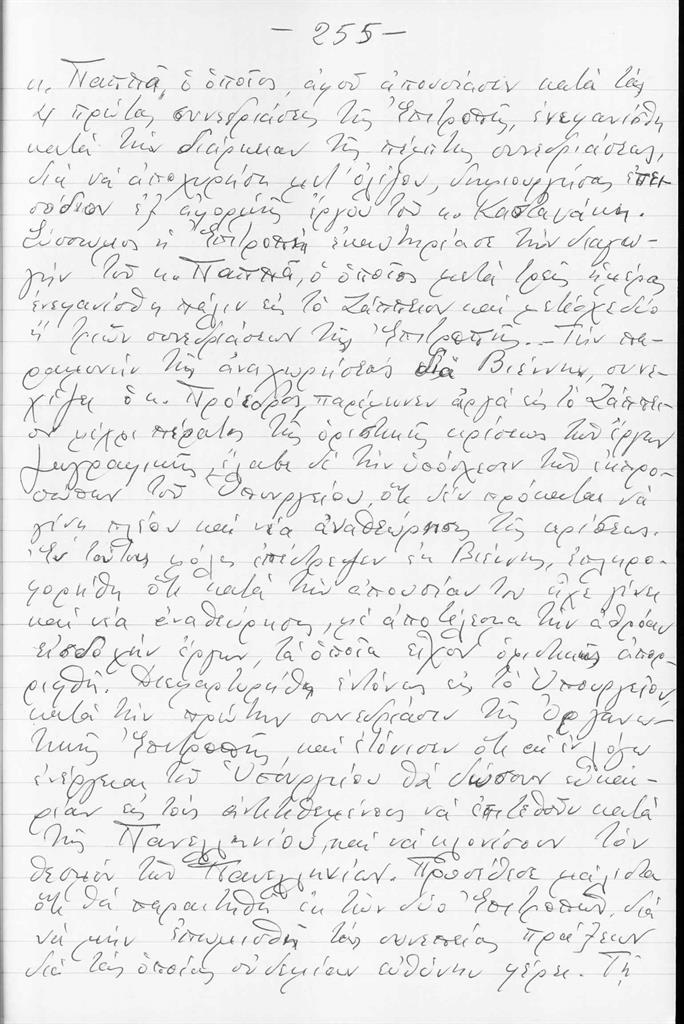 - 255 -
κ. Παππᾶ, ὁ ὁποῖος, ἀφοῦ ἀπουσίασεν κατὰ τὰς
4 πρώτας συνεδριάσεις τῆς Ἐπιτροπῆς, ἐνεφανίσθη
κατὰ τὴν διάρκειαν τῆς πέμπτης συνεδριάσεως,
διὰ νὰ ἀποχωρήση μετ' ὀλίγον, δημιουργήσας ἐπει-
σόδειον ἐξ ἀφορμῆς ἔργου τοῦ κ. Καστανάκη.
Σύσσωμος ἡ Ἐπιτροπὴ ἐκαυτηρίασε τὴν διαγω-
γὴν τοῦ κ. Παππᾶ, ὁ ὁποῖος μετὰ τρεῖς ἡμέρας
ἐνεφανίσθη πάλιν εἰς τὸ Ζάππειον καὶ μετέσχε δύο
ἢ τριῶν συνεδριάσεων τῆς Ἐπιτροπῆς.- Τὴν πα-
ραμονὴν τῆς ἀναχωρήσεώς διὰ Βιέννην, συνε-
χίζει ὁ κ. Πρόεδρος, παρέμεινεν ἀργὰ εἰς τὸ Ζάππει-
ον μέχρι πέρατος τῆς ὁριστικῆς κρίσεως τῶν ἔργων
ζωγραφικῆς, ἔλαβε δὲ τὴν ὑπόσχεσιν τῶν ἐκπρο-
σώπων τοῦ Ὑπουργείου, ὅτι δὲν πρόκειται νὰ
γίνη πλέον καὶ νέα ἀναθεώρησις τῆς κρίσεως.
Ἐν τούτοις μόλις ἐπέστρεψεν ἐκ Βιέννης, ἐπληρο-
φορήθη ὅτι κατὰ τὴν ἀπουσίαν του εἶχε γίνει
καὶ νέα ἀναθεώρησις, μὲ ἀποτέλεσμα τὴν ἀθρόαν
εἰσδοχὴν ἔργων, τὰ ὁποῖα εἶχον ὁριστικῶς ἀπορ-
ριφθῆ. Διεμαρτυρήθη ἐντόνως εἰς τὸ Ὑπουργεῖον,
κατὰ τὴν πρώτην συνεδρίασιν τῆς Ὀργανω-
τικῆς Ἐπιτροπῆς καὶ ἐτόνισεν ὅτι αἱ ἐν λόγω
ἐνέργειαι τοῦ Ὑπουργείου θὰ δώσουν εὐκαι-
ρίαν εἰς τοὺς ἀντιτιθεμένους νὰ ἐπιτεθοῦν κατὰ
τῆς Πανελληνίου, καὶ νὰ κλονίσουν τὸν
θεσμὸν τῶν Πανελληνίων. Προσέθεσε μάλιστα
ὅτι θὰ παραιτηθῆ ἐκ τῶν δύο Ἐπιτροπῶν, διὰ
νὰ μὴν ἐπωμισθῆ τὰς συνεπείας πράξεων
διὰ τὰς ὁποίας οὐδεμίαν εὐθύνην φέρει. Τῇ